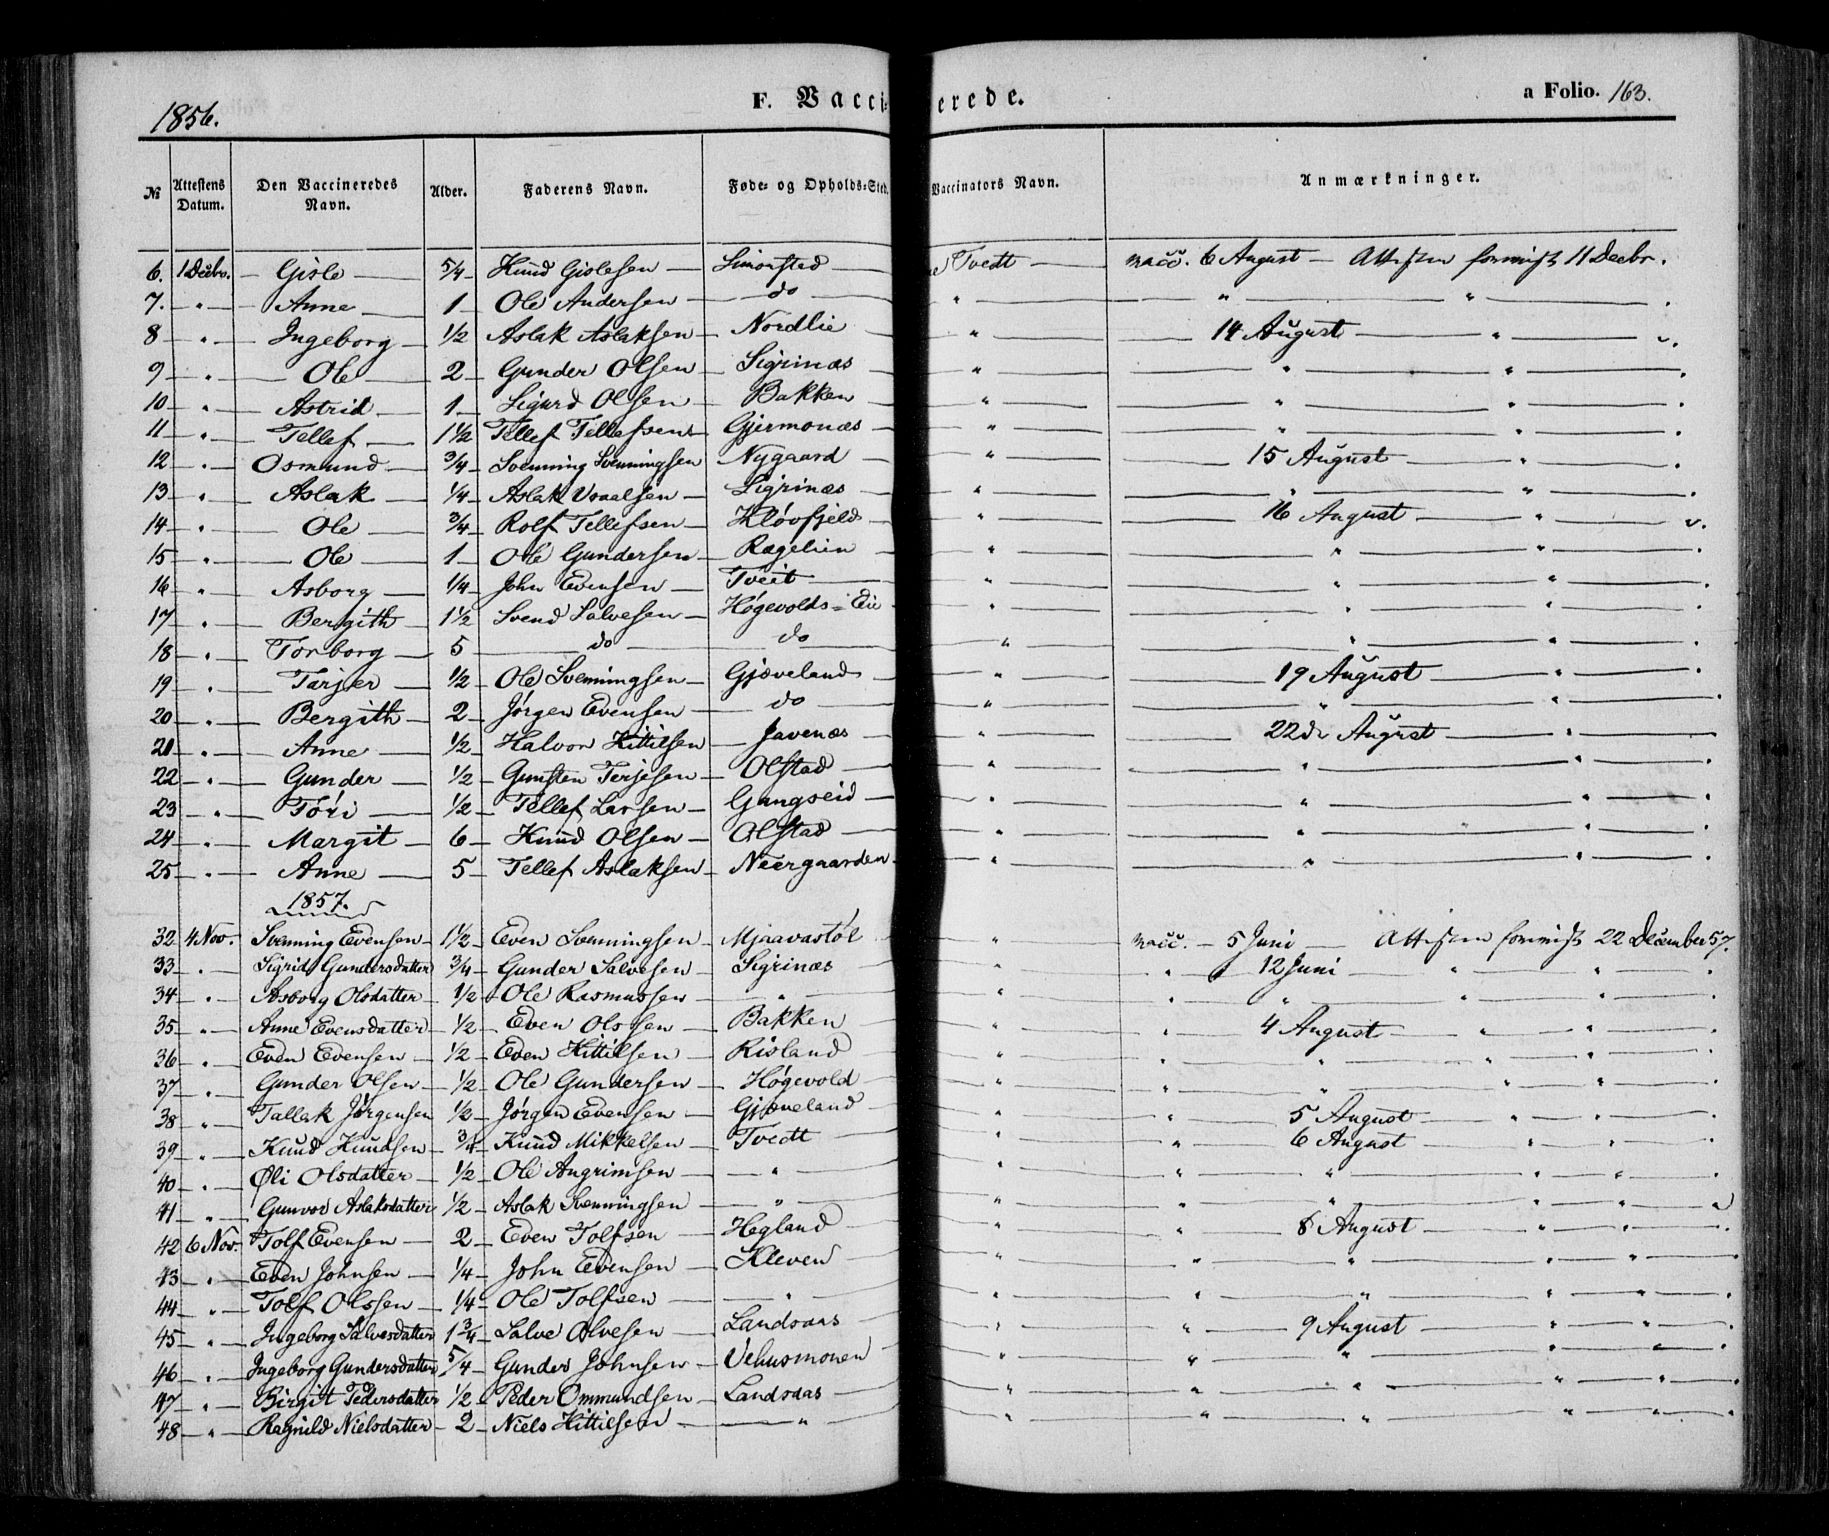 1856. F. Vaccinerede. a Folio. 163.
№ Attestens Datum. Den Vaccineredes Navn. Alder. Faderens Navn. Føde- og Opholds-Sted. Vaccinators Navn. Anmærkninger.
6. 1 Decbr. — Gisle — 5/4 — Knud Gislesen — Simonsted — Tvedt — vacc. 6 August — Attesten 11 Decbr.
7. — " — Anne — 1 — Ole Andersen — do — " — " — " — .
8 — " — Ingeborg — 1/2 — Aslak Aslaksen — Nordlie — " — 14 August — " —
9 — " — Ole — 2 — Gunder Olsen — Sigrinæs — " — " — " — .
10 — " — Astrid — 1 — Sigurd Olsen — Bakken — " — " — " — .
11 — " — Tellef — 1 1/2 — Tellef Tellefsen — Gjermonæs — " — " — " — .
12 — " — Osmund — 3/4 — Svenning Svenningsen — Nygaard — " — 15 August — " — .
13 — " — Aslak — 1/4 — Aslak — Sigrinæs — " — " — " — .
14 — " — Ole — 3/4 — Rolf Tellefsen — Kløvfjeld — " — 16 August — " —
15 — " — Ole — 1 — Ole Gundersen — Rægelien — " — " — " — .
16 — " — Asborg — 1/4 — John Evensen — Tveit — " — " — " — .
17 — " — Bergith — 1 1/2 — Svend Salvesen — Høgevolds-Eie — " — " — " — .
18 — " — Torborg — 5 — do — do — " — " — " — .
19 — " — Tarjer — 1/2 — Ole Svenningsen — Gjæveland — " — 19 August — " — .
20 — " — Bergith — 2 — Jørgen Evensen — do — " — " — " — .
21 — " — Anne — 1/2 — Halvor Kittilsen — Javenæs — " — 22de August — " — .
22 — " — Gunder — 1/2 — Gunsten Terjesen — Olstad — " — " — " — .
23 — " — Tøri — 1/2 — Tellef Larsen — Gangseid — " — " — " — .
24 — " — Margit — 6 — Knud Olsen — Olstad — " — " — " — .
25 — " — Anne — 5 — Tellef Aslaksen — Neergaarden — " — " — " — .
1857.
32 — 4 Nov. — Svenning Evensen — 1 1/2 — Even Svenningsen — Mjaavastøl — " — vacc. — 5 Juni — Attesten 22 December 57.
33 — " — Sigrid Gundersdatter — 3/4 — Gunder Salvesen — Sigrinæs — " — " — 12 Juni — " — " — .
34 — " — Asborg Olsdatter — 1/2 — Ole Rasmussen — " — " — " — " — " — " — .
35 — " — Anne Evensdatter — 1/2 — Even Olssen — Bakken — " — " — 4 August — " — " — .
36 — " — Even Evensen — 1/2 — Even Kittilsen — Risland — " — " — " — " — " — .
37 — " — Gunder Olsen — 1/2 — Ole Gundersen — Høgevold — " — " — " — " — " — .
38 — " — Tallak Jørgensen — 1/2 — Jørgen Evensen — Gjæveland — " — " — 5 August — " — " — .
39 — " — Knud Knudsen — 3/4 — Knud Mikkelsen — Tvedt — " — " — 6 August — " — " — .
40 — " — Øli Olsdatter — 1/2 — Ole Angrimsen — " — " — " — " — " — " — .
41 — " — Gunvor Aslaksdatter — 1/2 — Aslak Svenningsen — " — " — " — " — " — " —
42 — 6 Nov. — Tolf Evensen — 2 — Even Tolfsen — Hegland — " — " — 8 August — " — " — .
43 — " — Even Johnsen — 1/4 — John Evensen — Kleven — " — " — " — " — " — .
44 — " — Tolf Olssen — 1/4 — Ole Tolfsen — " — " — " — " — " — " — .
45 — " — Ingeborg Salvesdatter — 1 3/4 — Salve Olvesen — Landsaas — " — " — 9 August — " — " — .
46 — " — Ingeborg Gundersdatter — 5/4 — Gunder Johnsen — Vehusmonen — " — " — " — " — " — .
47 — " — Birgit Pedersdatter — 1/2 — Peder Ommundsen — Landsaas — " — " — " — " — " — .
48 — " — Ragnild Nielsdatter — 2 — Niels Kittilsen — " — " — " — " — " — " — .